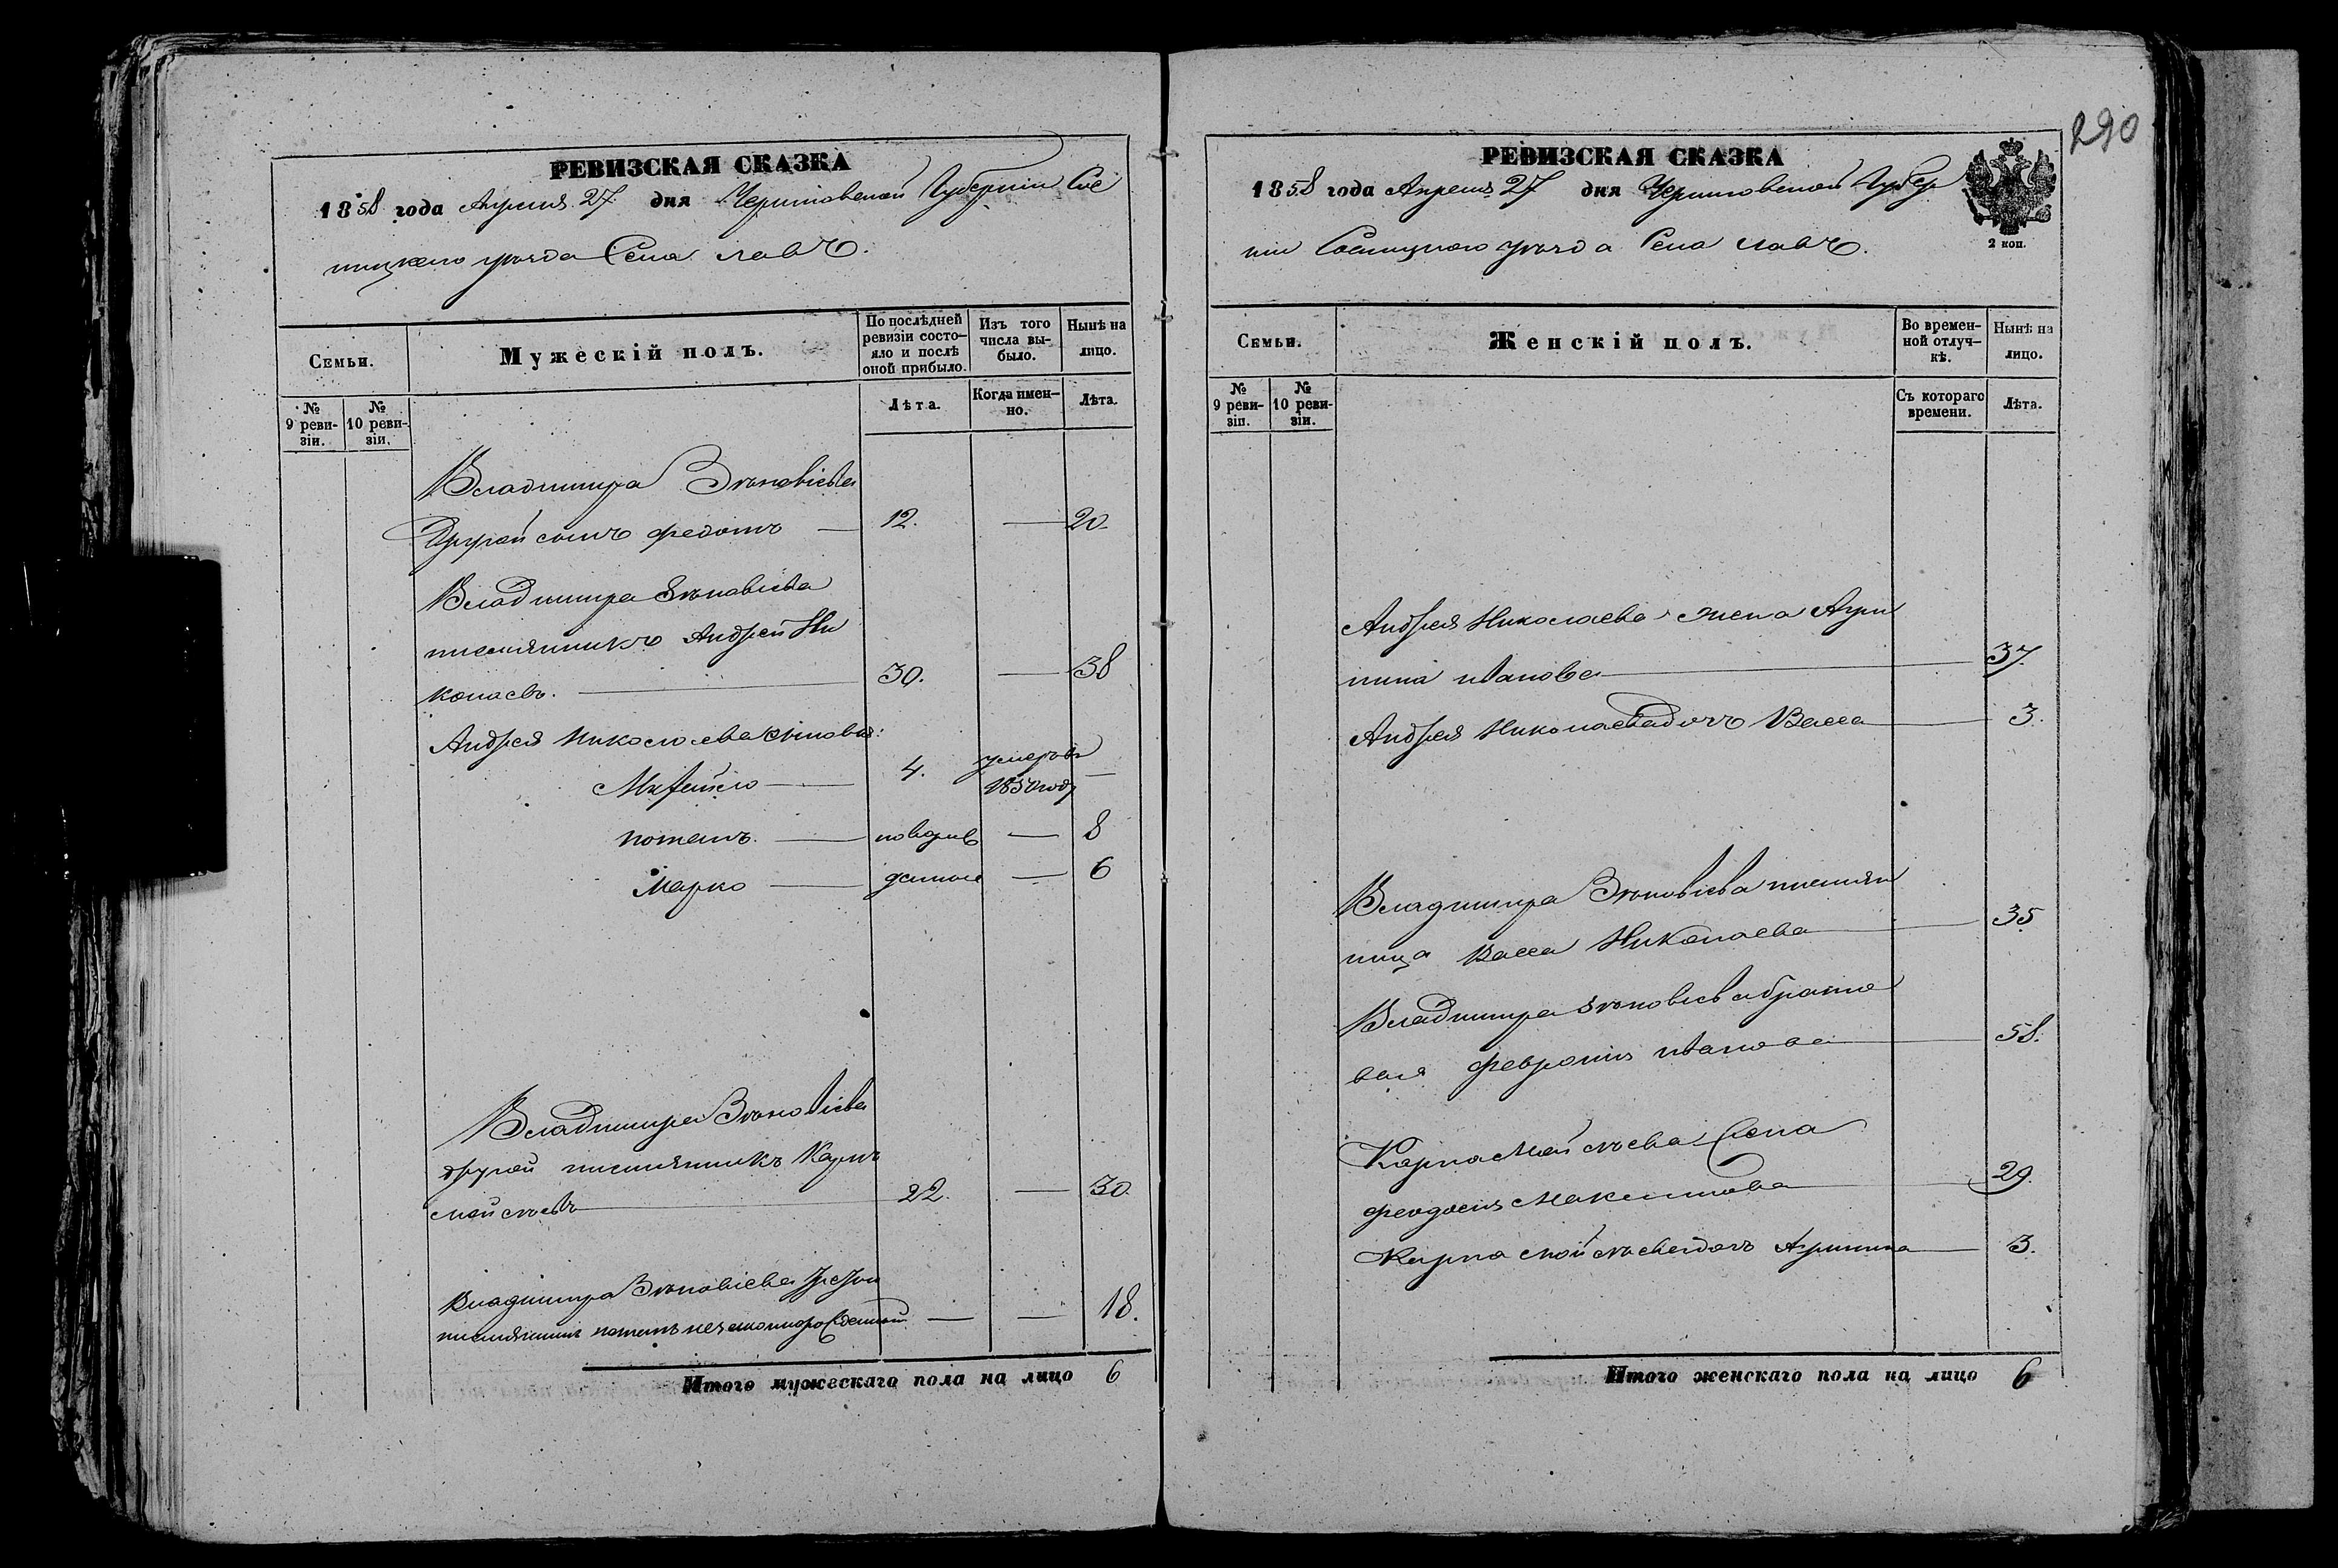 РЕВИЗСКАЯ СКАЗКА
1858 года Апреля 27 дня Черниговской Губернии Сос
ницкого уѣзда Села Лавъ.
Семьи.
Мужескій полъ.
По послѣдней ревизіи состо-
яло и послѣ
оной прибыло.
Изъ того
числа вы-
было.
Нынѣ на
лицо.
№
9 реви-
зіи.
№
10 реви-
зіи.
Лѣта.
Когда имен-
но.
Лѣта.
Владимира Зѣновіева
Другой сынъ Федотъ — 12. — 20
Владимира Зѣновіева
племянникъ Андрей Ни
колаевъ. — 30. — 38
Андрея Николаева сыновья:
Михайло — 4. умеръ въ —
1850 году
Потапъ. — новорож — 8
Марко — денные — 6
Владимира Зѣновіева
другой племянникъ Карпъ
Мойсѣевъ — 22. — 30.
Владимира Зѣновіева
племянникъ Потапъ незаконнорожденный — — 18.
Итого мужескаго пола на лицо 6
290
РЕВИЗСКАЯ СКАЗКА
1858 года Апреля 27 дня Черниговской Губер
ніи Сосницкого уѣзда Села Лавъ.
2 коп.
Семьи.
Женскій полъ.
Во времен-
ной отлуч-
кѣ.
Нынѣ на
лицо.
№
9 реви-
зіи.
№
10 реви-
зіи.
Съ котораго
времени.
Лѣта.
Андрея Николаева жена Агри
пина Иванова — 37.
Андрея Николаева дочь Васса — 3.
Владимира Зѣновіева племян
ница Васса Николаева — 35
Владимира Зѣновіева братова
вая Феврония Иванова — 58.
Карпа Мойсѣева жена
Феодосия Максимова — 29.
Карпа Мойсѣева дочь Агрипина — 3.
Итого женскаго пола на лицо 6